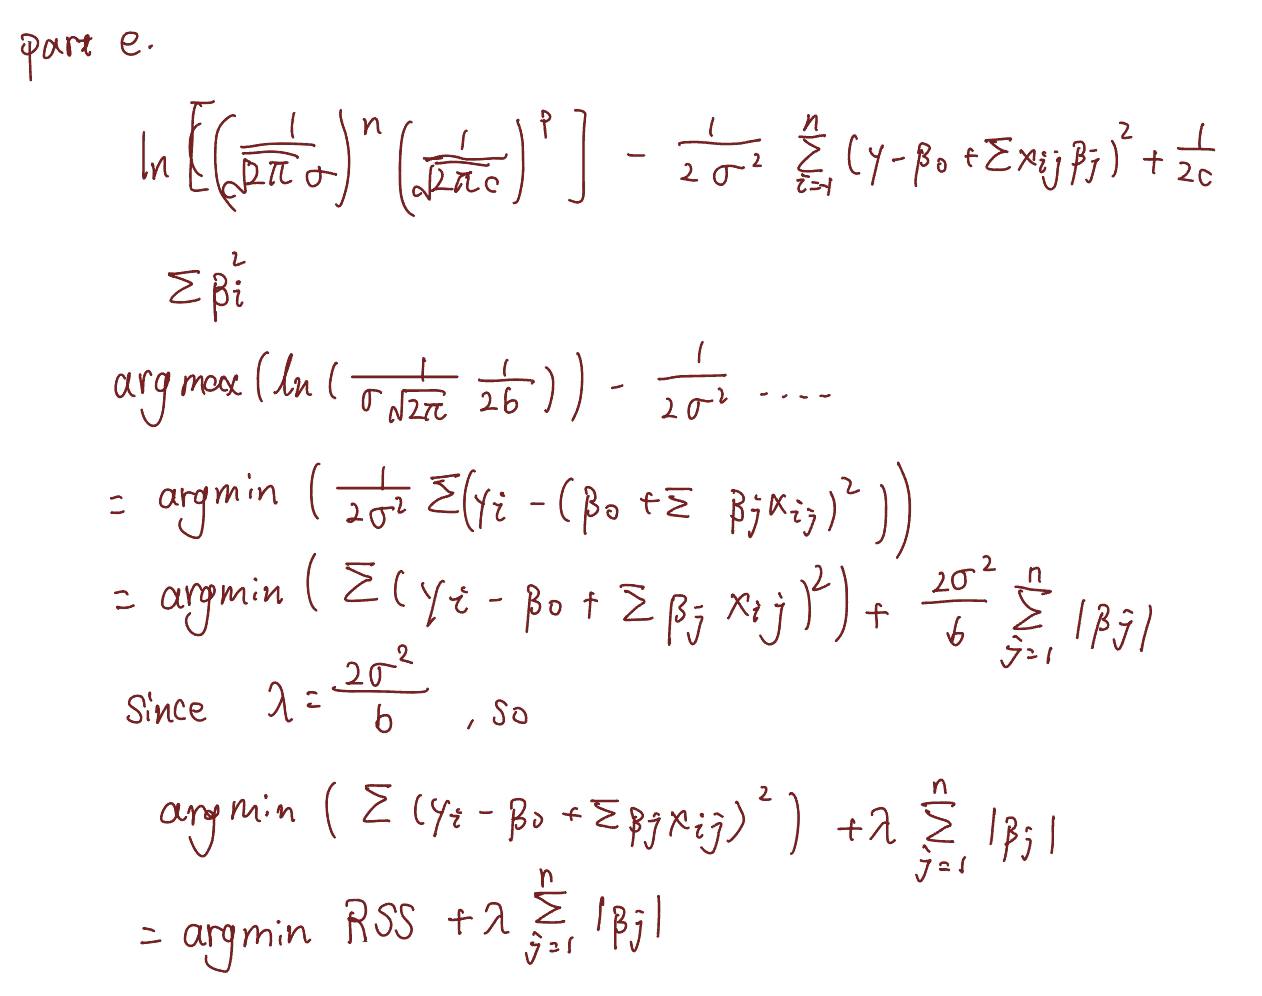 part e.
ln [((1/√2π σ)^n (1/√2πc)^p] - 1/2σ² Σ_{i=1}^n (y - β₀ + Σ x_ij β_j)² + 1/2c
Σ β_i²
argmax (ln (1/σ√2π 1/2b)) - 1/2σ² ....
= argmin (1/2σ² Σ(y_i - (β₀ + Σ β_j x_ij)²))
= argmin (Σ (y_i - β₀ + Σ β_j x_ij)²) + 2σ²/b Σ_{j=1}^n |β_j|
since λ = 2σ²/b , so
argmin (Σ (y_i - β₀ + Σ β_j x_ij)²) + λ Σ_{j=1}^n |β_j|
= argmin RSS + λ Σ_{j=1}^n |β_j|